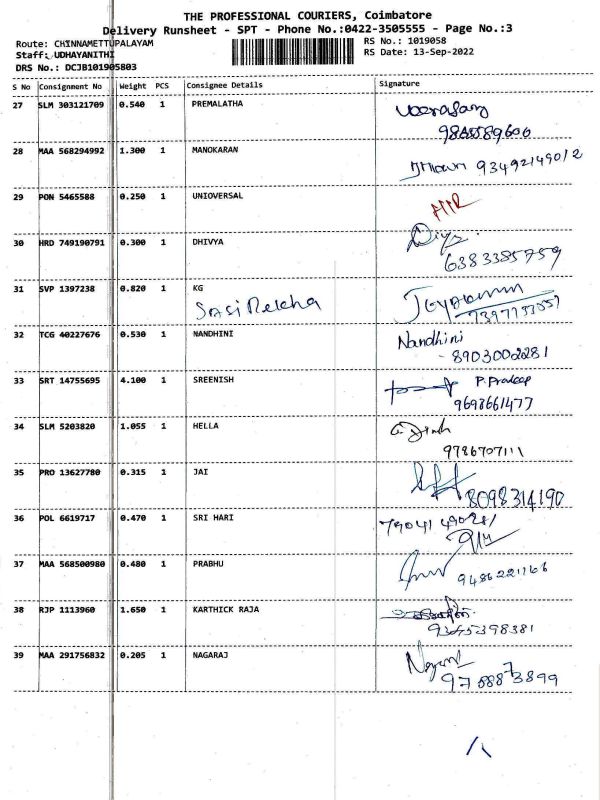 THE PROFESSIONAL COURIERS, Coimbatore
Delivery Runsheet - SPT - Phone No.:0422-3505555 - Page No.:3
Route: CHINNAMETTUPALAYAM RS No.: 1019058
Staff: UDHAYANITHI RS Date: 13-Sep-2022
DRS No.: DCJB101905803
S No Consignment No Weight PCS Consignee Details Signature
27 SLM 303121709 0.540 1 PREMALATHA
28 MAA 568294992 1.300 1 MANOKARAN
93492149012
29 PON 5465588 0.250 1 UNIOVERSAL
30 HRD 749190791 0.300 1 DHIVYA
6383385759
31 SVP 1397238 0.820 1 KG
SasiRekha
32 TCG 40227676 0.530 1 NANDHINI Nandhini
- 8903002281
33 SRT 14755695 4.100 1 SREENISH P. Pradeep
9698661477
34 SLM 5203820 1.055 1 HELLA
9786707111
35 PRO 13627780 0.315 1 JAI
8098314190
36 POL 6619717 0.470 1 SRI HARI
37 MAA 568500980 0.480 1 PRABHU
38 RJP 1113960 1.650 1 KARTHICK RAJA
9345398381
39 MAA 291756832 0.205 1 NAGARAJ